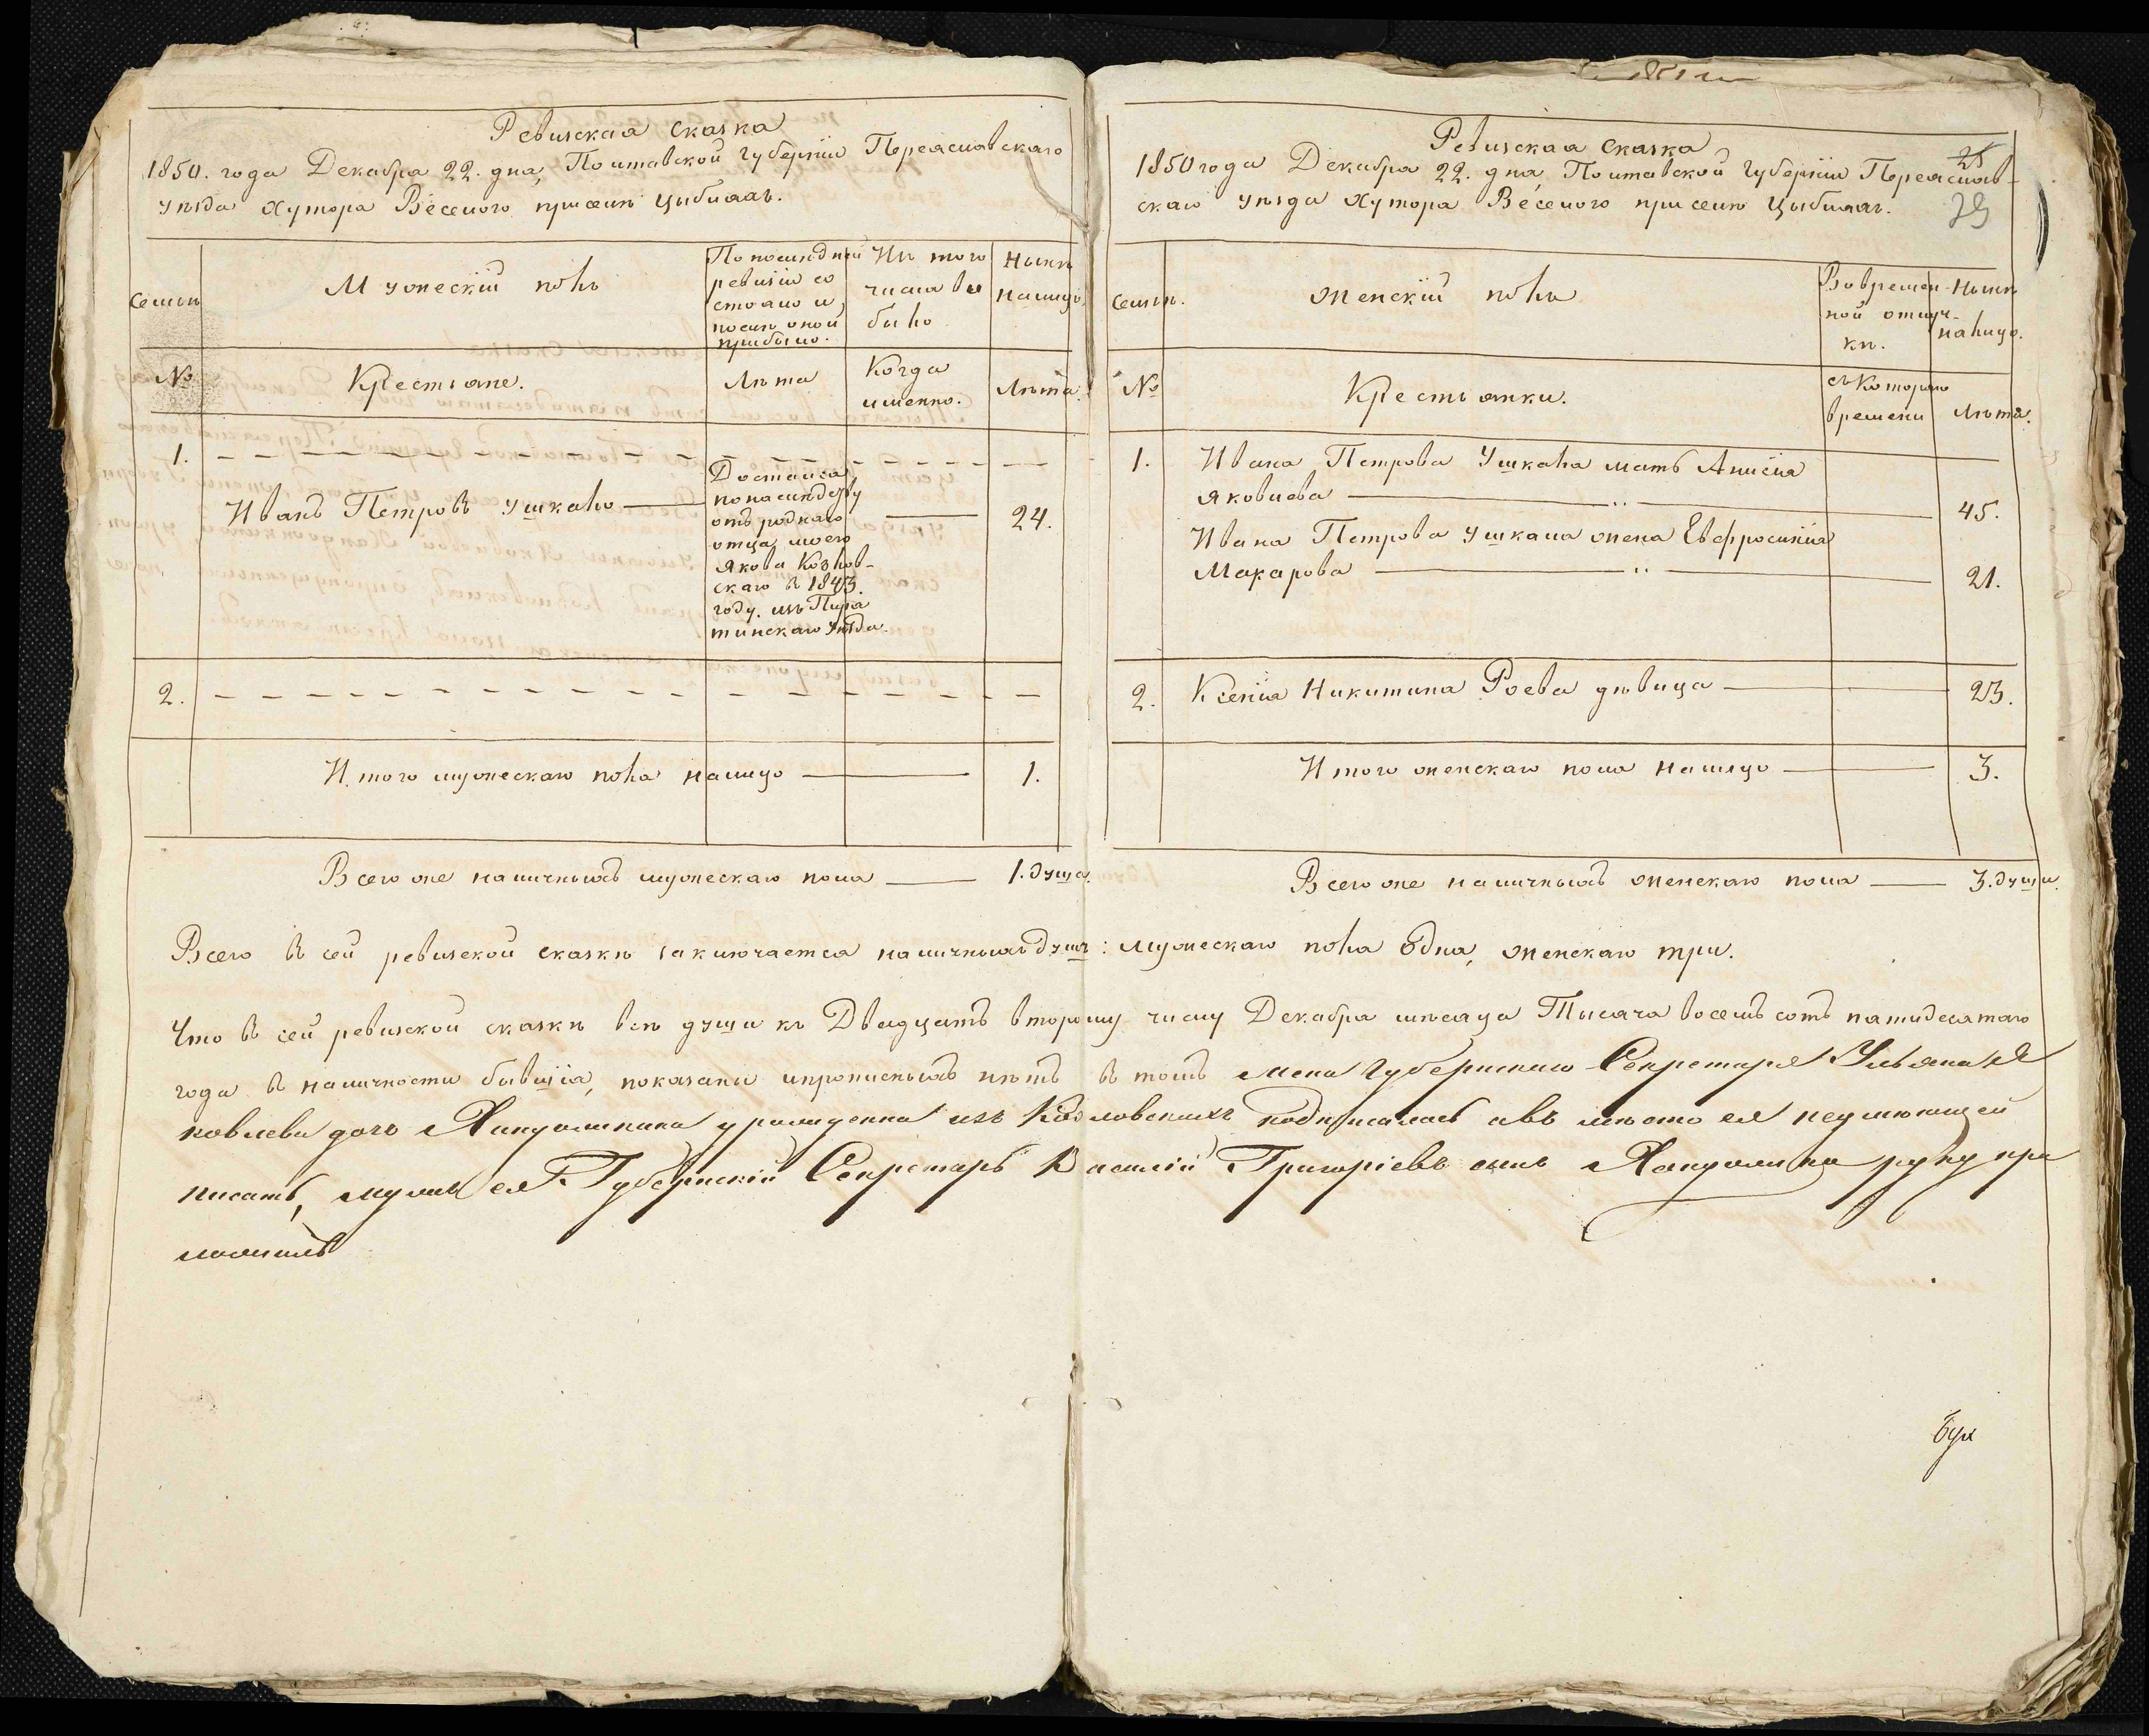 Ревизская сказка
1850. года Декабря 22. дня, Полтавской губерніи Переяславскаго
уѣзда хутора Веселого при селѣ Цыбляхъ.
семьи
Мужескій полъ
По последней ревизіи со стояло и послѣ оной прибыло.
Изъ того числа вы было
Нынѣ налицо.
№
Крестьяне.
Лѣта
Когда именно.
Лѣта.
1.
Иванъ Петровъ Ушкало
Достался
по наследству
отъ роднаго
отца моего
Якова Козлов-
скаго в 1843.
году. изъ Пиря
тинскаго уѣзда.
24.
2.
Итого мужескаго пола налицо 1.
Всего же наличныхъ мужескаго пола 1. душа.
Ревизская сказка
25
1850 года Декабря 22. дня, Полтавской губерніи Переяслав-
скаго уѣзда хутора Веселого при селѣ Цыбляхъ.
29
семьи.
женскій полъ
Во времен ной отлуч- кѣ.
Нынѣ налицо.
№
Крестьянки.
съ Котораго времени
Лѣта.
1. Ивана Петрова Ушкала мать Анисія
Яковлева " 45.
Ивана Петрова Ушкала жена Евфросинія
Макарова " 21.
2. Ксенія Никитина Роева девица 23.
Итого женскаго пола налицо 3.
Всего же наличныхъ женскаго пола 3. души.
Всего в сей ревизской сказкѣ заключается наличныхъ душъ: мужескаго пола одна, женскаго три.
Что в сей ревизской сказкѣ всѣ души къ Двадцать второму числу Декабря мѣсяца Тысяча восемь сотъ пятидесятаго
года в наличности бывшія, показаны и прописныхъ нѣтъ в томъ жена губернскаго Секретаря Ульяна Я
ковлева дочь урожденна изъ Козловскихъ подписалась а въ мѣсто ея неумеющей
писать, мужъ ея Губернскій Секретарь Василій Григоріевъ сынъ руку при
ложилъ